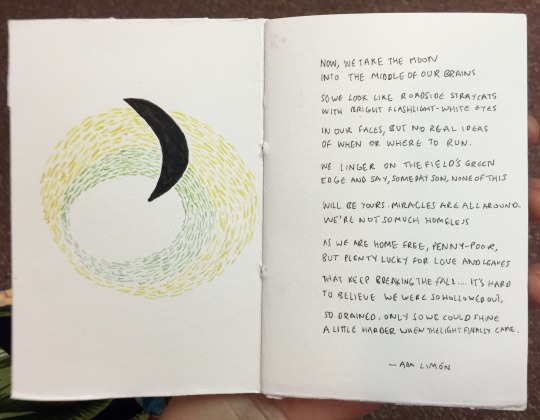 NOW, WE TAKE THE MOON
INTO THE MIDDLE OF OUR BRAINS
SO WE LOOK LIKE ROADSIDE STRAY CATS
WITH BRIGHT FLASHLIGHT-WHITE EYES
IN OUR FACES, BUT NO REAL IDEAS
OF WHEN OR WHERE TO RUN.
WE LINGER ON THE FIELD'S GREEN
EDGE AND SAY, SOMEDAY SON, NONE OF THIS
WILL BE YOURS. MIRACLES ARE ALL AROUND.
WE'RE NOT SO MUCH HOMELESS
AS WE ARE HOME FREE, PENNY-POOR,
BUT PLENTY LUCKY FOR LOVE AND LEAVES
THAT KEEP BREAKING THE FALL.... IT'S HARD
TO BELIEVE WE WERE SO HOLLOWED OUT,
SO DRAINED. ONLY SO WE COULD SHINE
A LITTLE HARDER WHEN THE LIGHT FINALLY CAME.
— ADA LIMÓN